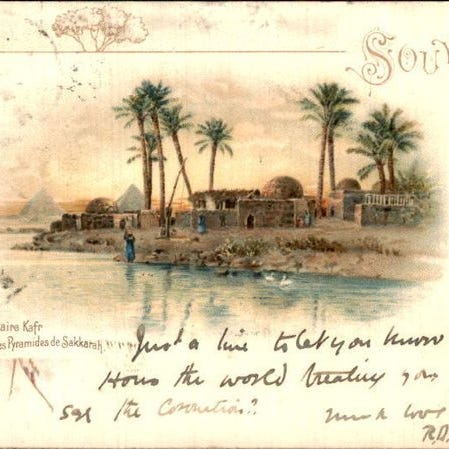 Souv
aire Kafr
es Pyramides de Sakkarah.
Just a line to let you know
How's the world treating you
see the Coronation?
much love
R.D.